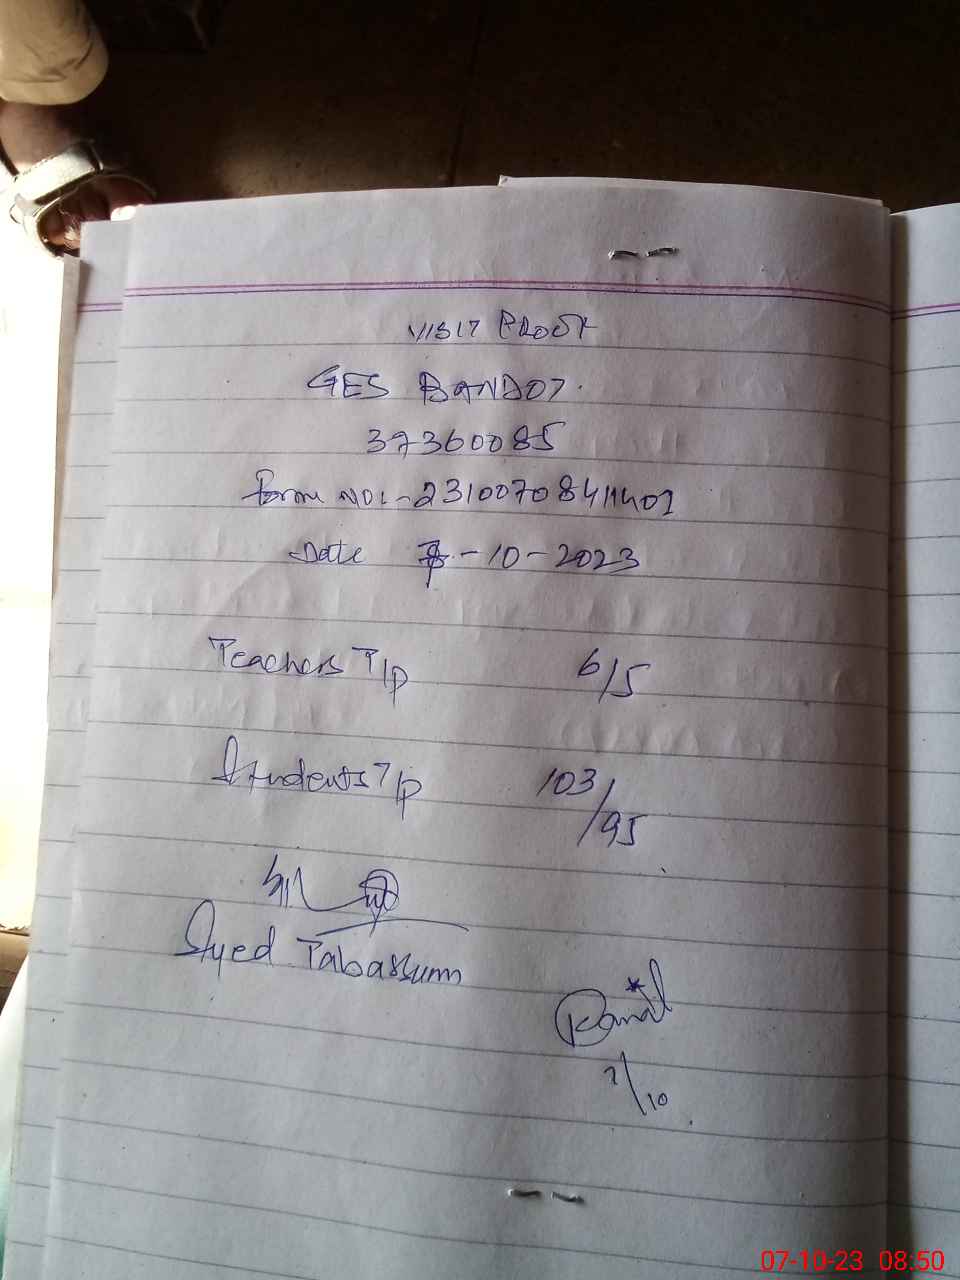 VISIT PROOF
GES BANDOT.
37360085
Form NO:- 2310070841401
Date 7-10-2023
Teachers T/P 6/5
Students T/P 103/95
Syed Tabassum
Kamal
7/10
07-10-23 08:50